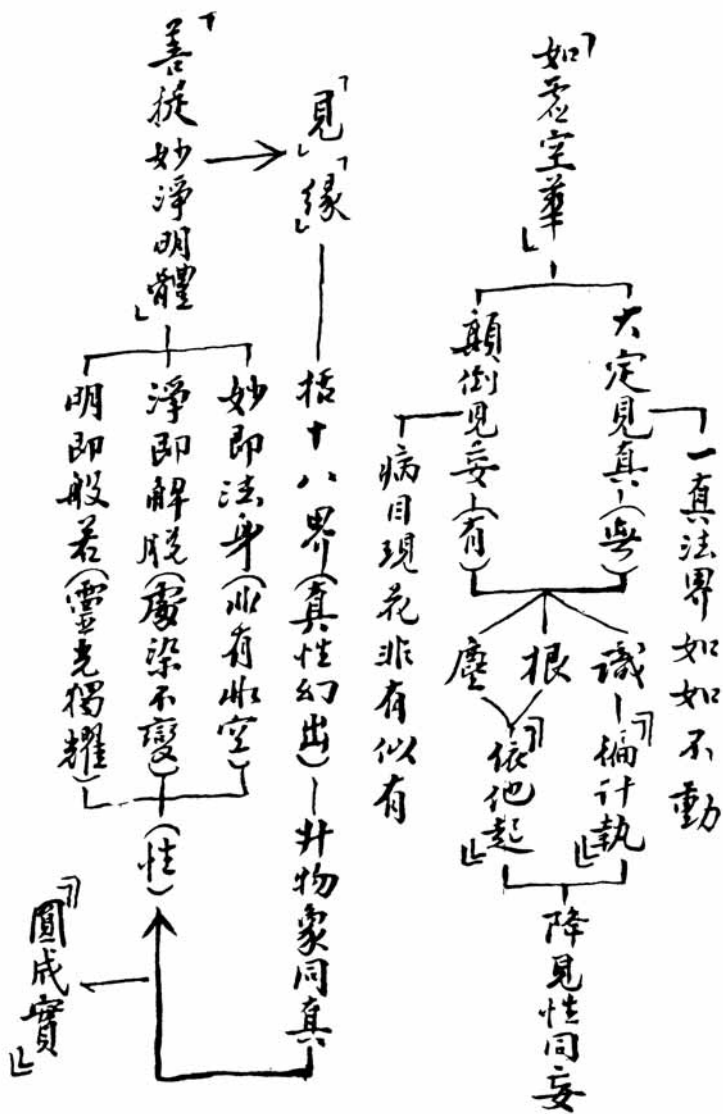 「如虛空華」
大定見真-(無)
一真法界如如不動
顛倒見妄-(有)
病目現花非有似有
識-『徧計執』
根
塵
『依他起』
降見性同妄
「見」「緣」
括十八界(真性幻出)-升物象同真
「菩提妙淨明體」
妙即法身(非有非空)
淨即解脫(處染不變)
明即般若(靈光獨耀)
(性)
『圓成實』